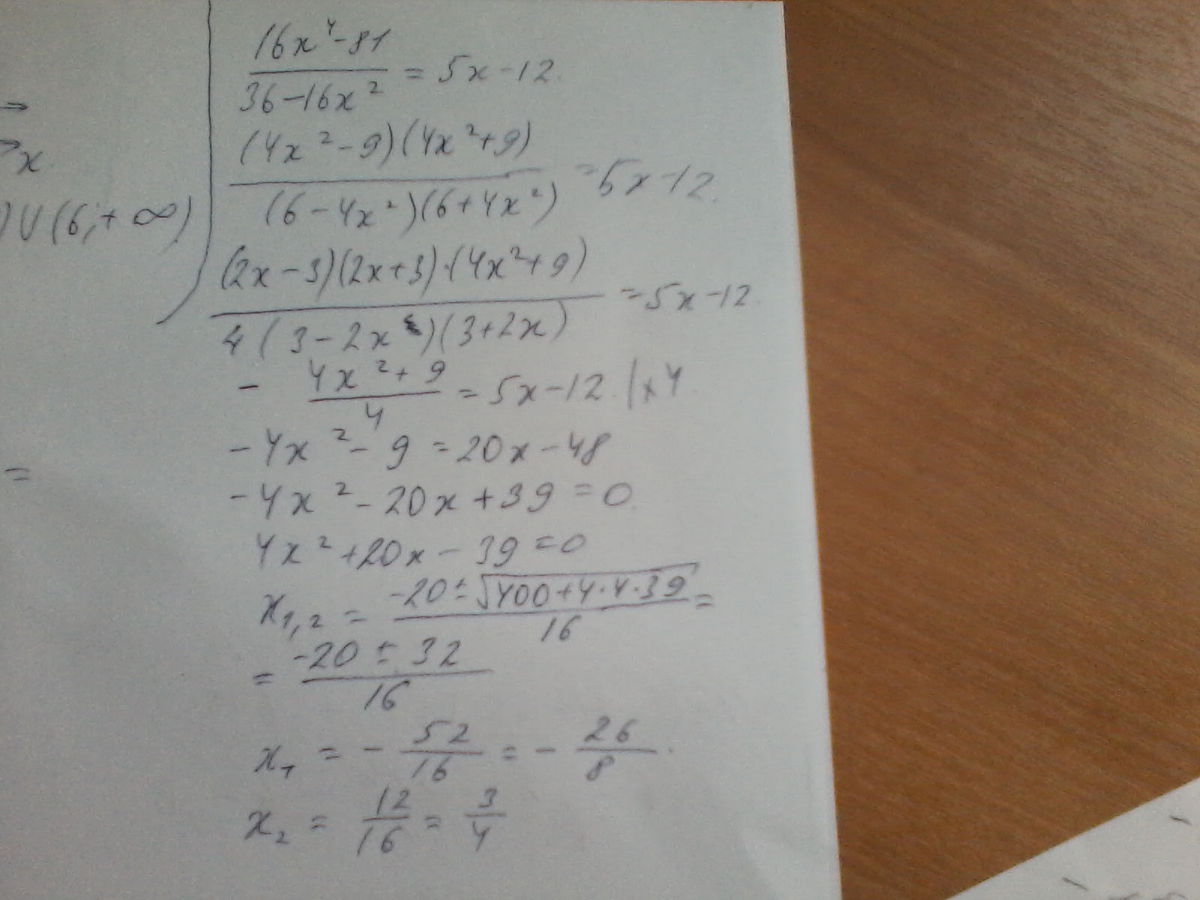 →
→ x
) ∪ (6; +∞)
=
(16x⁴ - 81)/(36 - 16x²) = 5x - 12.
((4x² - 9)(4x² + 9))/((6 - 4x²)(6 + 4x²)) = 5x - 12.
((2x - 3)(2x + 3)·(4x² + 9))/(4(3 - 2x)(3 + 2x)) = 5x - 12
- (4x² + 9)/4 = 5x - 12 | × 4
-4x² - 9 = 20x - 48
-4x² - 20x + 39 = 0
4x² + 20x - 39 = 0
x₁,₂ = (-20 ± √(400 + 4·4·39))/16 =
= (-20 ± 32)/16
x₁ = - 52/16 = - 26/8.
x₂ = 12/16 = 3/4